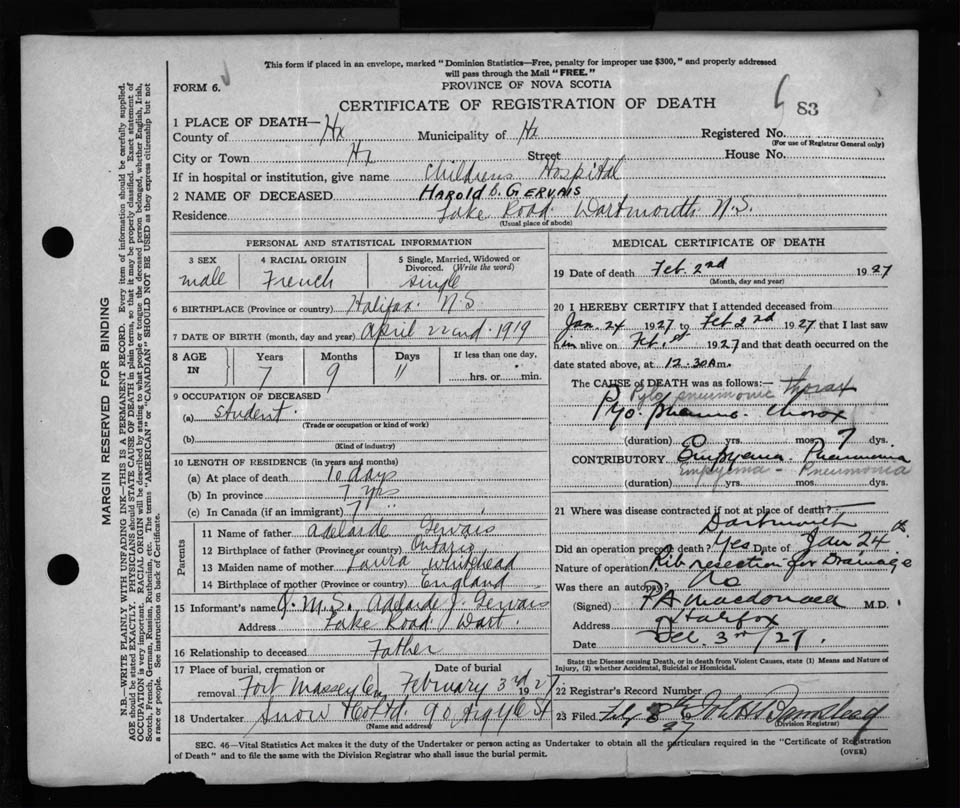 This form if placed in an envelope, marked "Dominion Statistics—Free, penalty for improper use $300," and properly addressed
will pass through the Mail "FREE."
FORM 6.
PROVINCE OF NOVA SCOTIA
CERTIFICATE OF REGISTRATION OF DEATH
83
1 PLACE OF DEATH—
County of Hx Municipality of Hx Registered No.
(For use of Registrar General only)
City or Town Hx Street House No.
If in hospital or institution, give name Childrens Hospital
2 NAME OF DECEASED HAROLD GERVAIS
Residence Lake Road Dartmouth N.S.
(Usual place of abode)
PERSONAL AND STATISTICAL INFORMATION
3 SEX 4 RACIAL ORIGIN 5 Single, Married, Widowed or
Divorced. (Write the word)
male French single
6 BIRTHPLACE (Province or country) Halifax N.S
7 DATE OF BIRTH (month, day and year) April 22nd 1919
8 AGE IN Years Months Days If less than one day,
7 9 11 hrs. or min.
9 OCCUPATION OF DECEASED
(a) student
(Trade or occupation or kind of work)
(b)
(Kind of industry)
10 LENGTH OF RESIDENCE (in years and months)
(a) At place of death 10 days
(b) In province 7 yrs
(c) In Canada (if an immigrant) 7 "
Parents
11 Name of father Adelaide Gervais
12 Birthplace of father (Province or country) Ontario
13 Maiden name of mother Laura Whitehead
14 Birthplace of mother (Province or country) England
15 Informant's name Adelaide J. Gervais
Address Lake Road Dart.
16 Relationship to deceased Father
17 Place of burial, cremation or Date of burial
removal Fort Massey Cem February 3rd 1927
18 Undertaker Snow & Co Ltd 90 Argyle St
(Name and address)
MEDICAL CERTIFICATE OF DEATH
19 Date of death Feb. 2nd 1927
(Month, day and year)
20 I HEREBY CERTIFY that I attended deceased from
Jan. 24 1927 to Feb 2nd 1927 that I last saw
him alive on Feb. 1st 1927 and that death occurred on the
date stated above, at 12.30 Am.
The CAUSE of DEATH was as follows:— thorax
Pylo pneumonic
Pyo. thorax
(duration) yrs. mos. 7 dys.
CONTRIBUTORY Empyema - Pneumonia
Empyema - Pneumonia
(duration) yrs. mos. dys.
21 Where was disease contracted if not at place of death?
Dartmouth
Did an operation precede death? Yes Date of Jan 24
Nature of operation Rib resection for Drainage
Was there an autopsy? No
(Signed) P A Macdonald M.D.
Address Halifax
Date Feb. 3rd /27.
State the Disease causing Death, or in death from Violent Causes, state (1) Means and Nature of
Injury, (2) whether Accidental, Suicidal or Homicidal.
22 Registrar's Record Number
23 Filed Feb 8th 27
(Division Registrar)
SEC. 46—Vital Statistics Act makes it the duty of the Undertaker or person acting as Undertaker to obtain all the particulars required in the "Certificate of Registration
of Death" and to file the same with the Division Registrar who shall issue the burial permit.
(OVER)
MARGIN RESERVED FOR BINDING
N.B.—WRITE PLAINLY WITH UNFADING INK—THIS IS A PERMANENT RECORD. Every item of information should be carefully supplied.
AGE should be stated EXACTLY. PHYSICIANS should STATE CAUSE OF DEATH in plain terms, so that it may be properly classified. Exact statement of
OCCUPATION is very important. RACIAL ORIGIN will be described by stating to what people or tongue the deceased person belonged, whether English, Irish,
Scotch, French, German, Russian, Ruthenian, etc. The terms "AMERICAN" or "CANADIAN" SHOULD NOT BE USED as they express citizenship but not
a race or people. See instructions on back of Certificate.